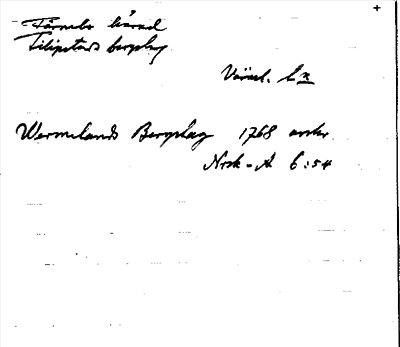 Färnebo härad
Filipstads bergslag
Värml. l:n
Wermelands Bergslag 1768
Nrsk-A 6:54